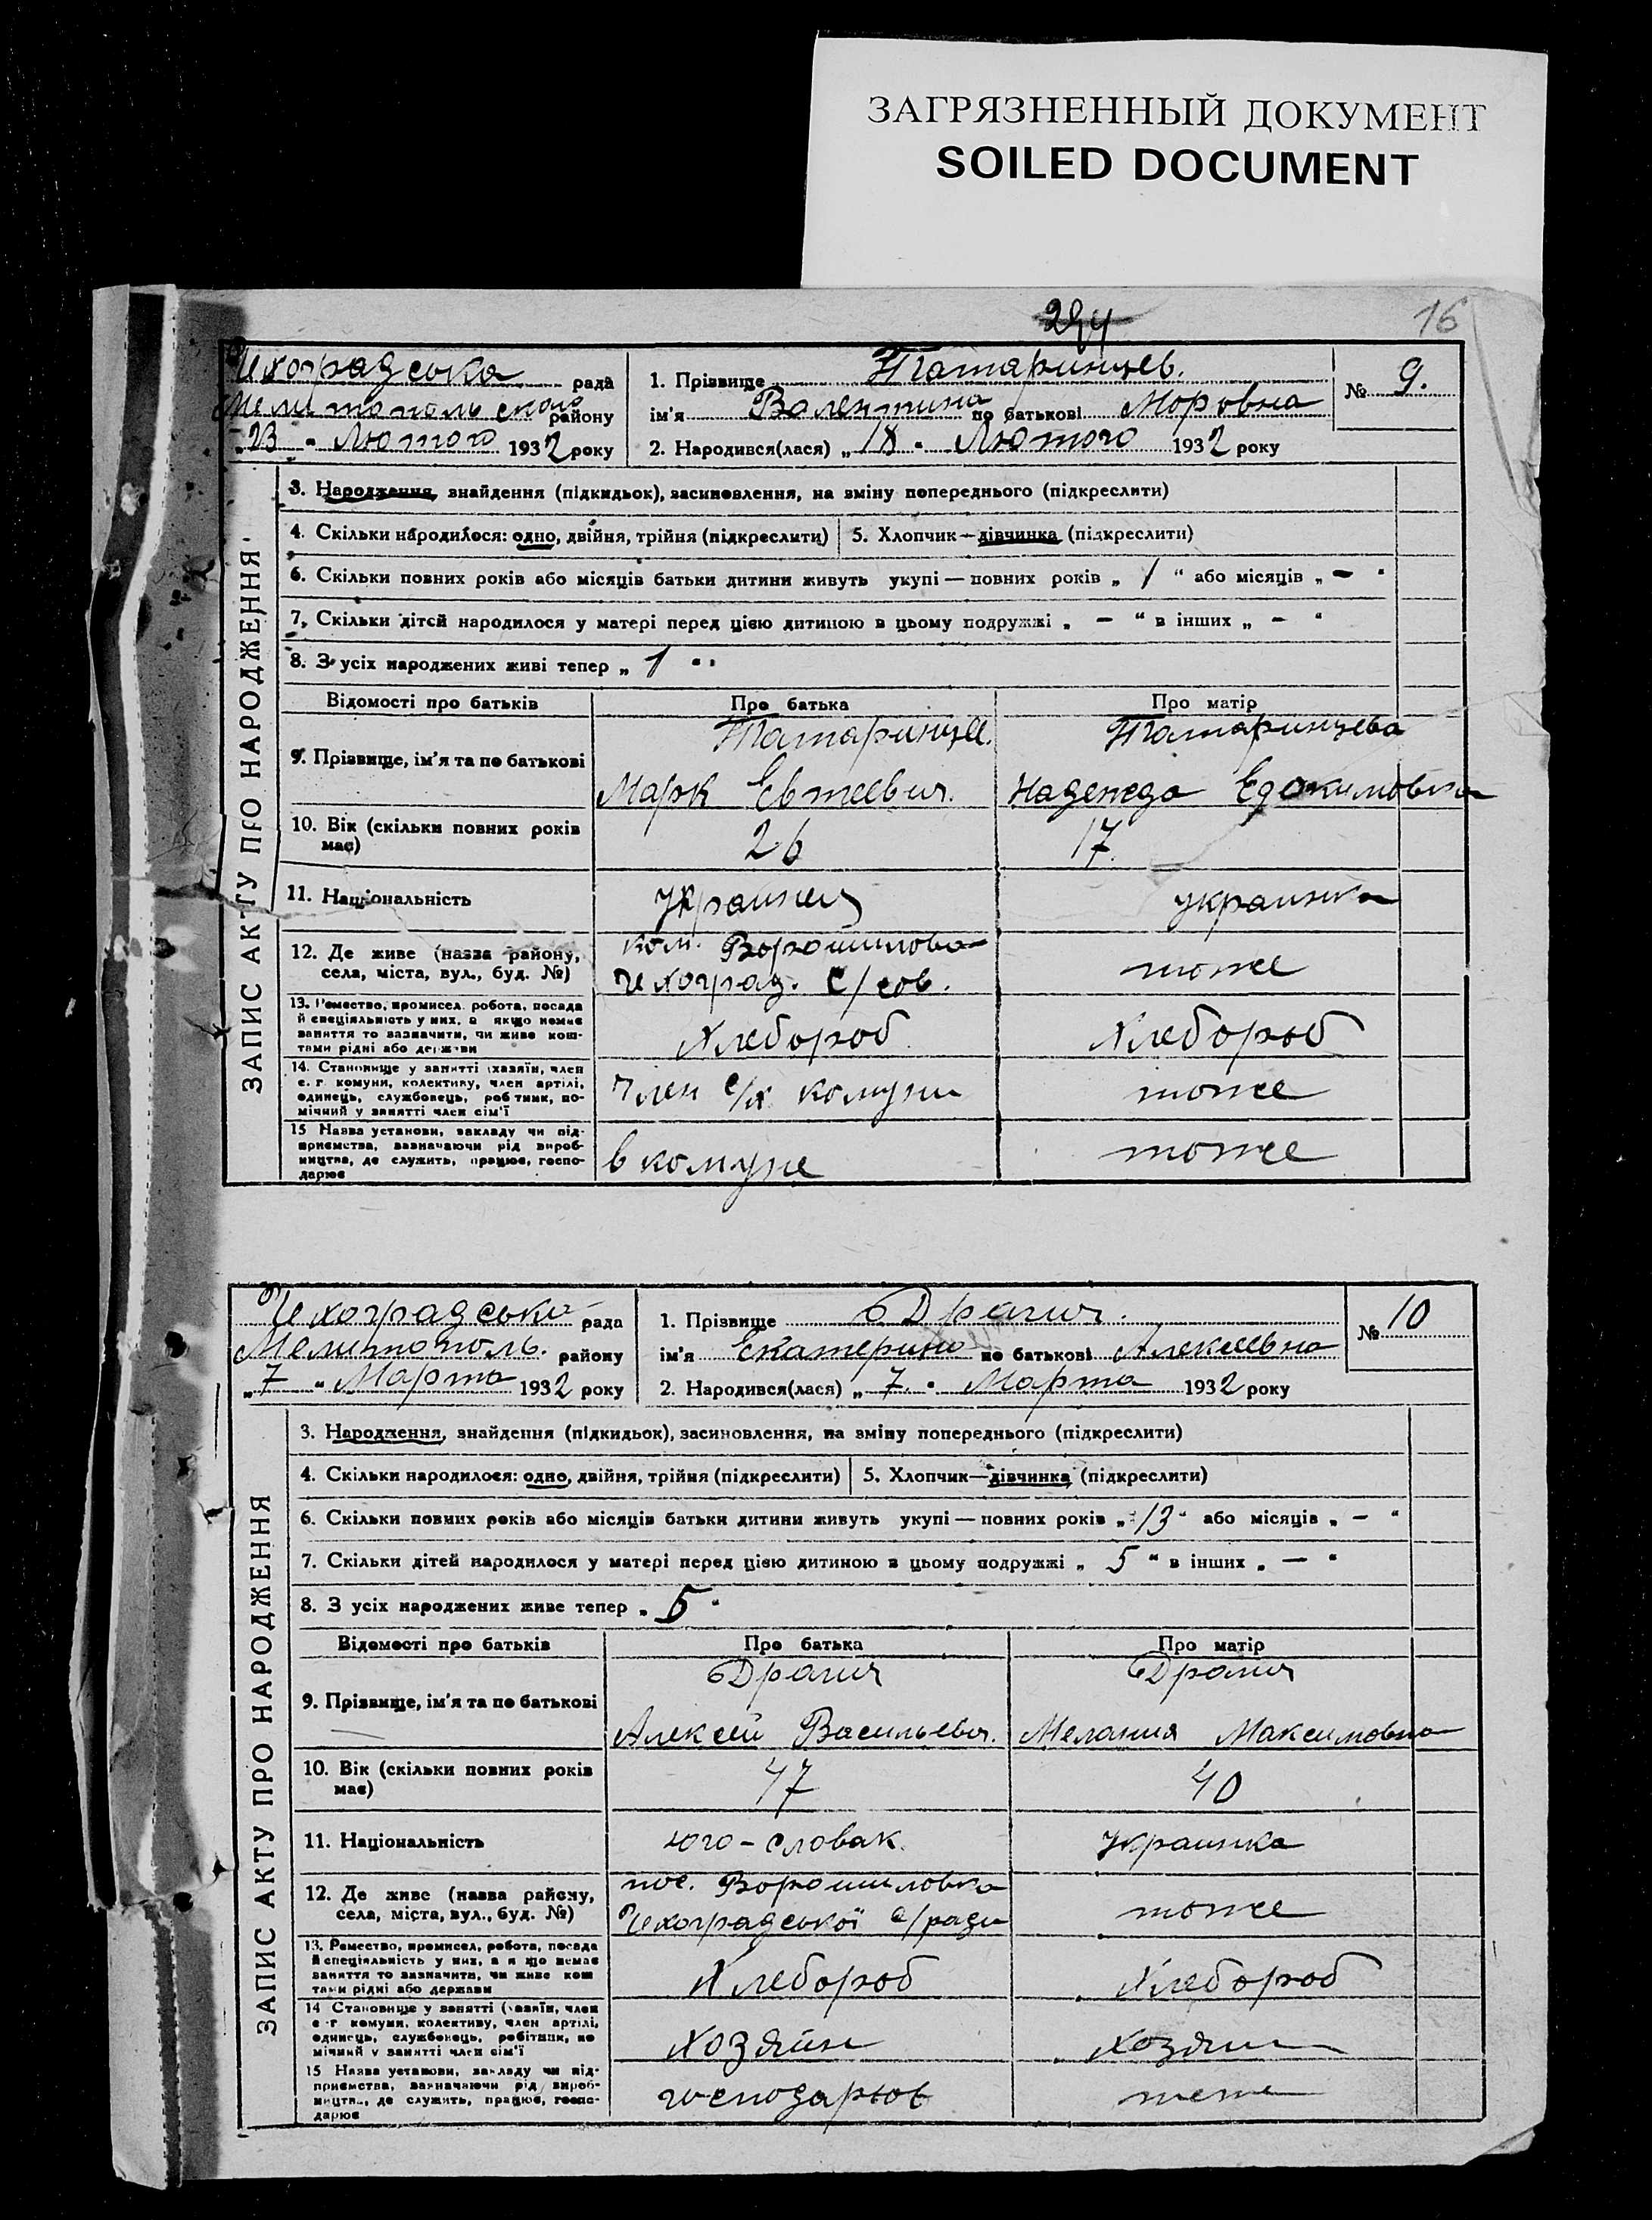 ЗАГРЯЗНЕННЫЙ ДОКУМЕНТ
SOILED DOCUMENT
294
16
Чехоградська рада
Мелитопольского району
„23" Лютого 1932 року
1. Прізвище Татаринцев.
ім'я Валентина по батькові Морковна
2. Народився(лася) „18" Лютого 1932 року
№ 9.
ЗАПИС АКТУ ПРО НАРОДЖЕННЯ
3. Народження, знайдення (підкидьок), засиновлення, на зміну попереднього (підкреслити)
4. Скільки народилося: одно, двійня, трійня (підкреслити)
5. Хлопчик—дівчинка (підкреслити)
6. Скільки повних років або місяців батьки дитини живуть укупі — повних років „ 1 " або місяців „ — "
7. Скільки дітей народилося у матері перед цією дитиною в цьому подружжі „ — " в інших „ — "
8. З усіх народжених живі тепер „ 1 "
Відомості про батьків Про батька Про матір
9. Прізвище, ім'я та по батькові
Татаринцев. Татаринцева
Марк Евтеевич. Надежда Едокимовна
10. Вік (скільки повних років має)
26 17
11. Національність
украинец украинка
12. Де живе (назва району,
села, міста, вул., буд. №)
ком. Ворошилова
Чехоград. с/сов. тоже
13. Ремество, промисел, робота, посада
й спеціяльність у них, а якщо немає
заняття то зазначити, чи живе кош-
тами рідні або держави
Хлебороб Хлебороб
14. Становище у занятті (хазяїн, член
с. г. комуни, колективу, член артілі,
одинець, службовець, робітник, по-
мічний у занятті член сім'ї
Член с/х комуни тоже
15 Назва установи, закладу чи під-
приємства, зазначаючи рід вироб-
ництва, де служить, працює, госпо-
дарює
в комуне тоже
Чехоградська рада
Мелитополь. району
„7" Марта 1932 року
1. Прізвище Драгич.
ім'я Екатерина по батькові Алексеевна
2. Народився(лася) „7." Марта 1932 року
№ 10
ЗАПИС АКТУ ПРО НАРОДЖЕННЯ
3. Народження, знайдення (підкидьок), засиновлення, на зміну попереднього (підкреслити)
4. Скільки народилося: одно, двійня, трійня (підкреслити)
5. Хлопчик—дівчинка (підкреслити)
6. Скільки повних років або місяців батьки дитини живуть укупі — повних років „ 13 " або місяців „ — "
7. Скільки дітей народилося у матері перед цією дитиною в цьому подружжі „ 5 " в інших „ — "
8. З усіх народжених живе тепер „ 5 "
Відомості про батьків Про батька Про матір
9. Прізвище, ім'я та по батькові
Драгич Драгич
Алексей Васильевич. Мелания Максимовна
10. Вік (скільки повних років
має)
47 40
11. Національність
юго-словак. Украинка
12. Де живе (назва району,
села, міста, вул., буд. №)
пос. Ворошиловка
Чехоградської с/ради тоже
13. Ремество, промисел, робота, посада
й спеціяльність у них, а якщо немає
заняття то зазначити, чи живе кош
тами рідні або держави
Хлебороб Хлебороб
14 Становище у занятті (хазяїн, член
с. г комуни, колективу, член артілі,
одинець, службовець, робітник, по
мічний у занятті член сім'ї
Хозяйн Хозяин
15 Назва установи, закладу чи під-
приємства, зазначаючи рід вироб-
ництва, де служить, працює, госпо-
дарює
господарює теж